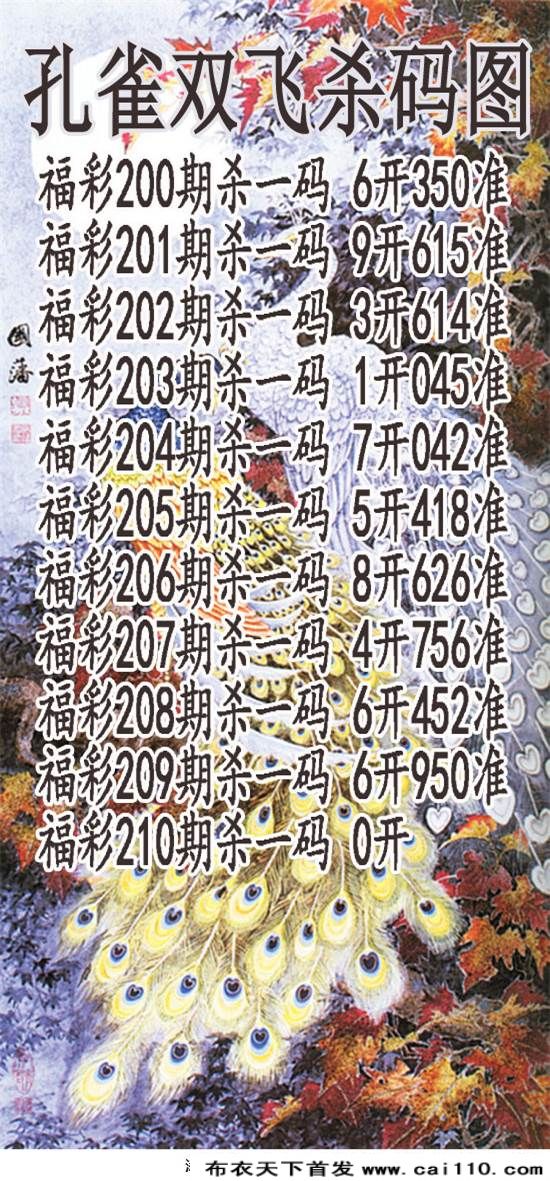 孔雀双飞杀码图
福彩200期杀一码 6开350准
福彩201期杀一码 9开615准
福彩202期杀一码 3开614准
福彩203期杀一码 1开045准
福彩204期杀一码 7开042准
福彩205期杀一码 5开418准
福彩206期杀一码 8开626准
福彩207期杀一码 4开756准
福彩208期杀一码 6开452准
福彩209期杀一码 6开950准
福彩210期杀一码 0开
國藩
布衣天下首发 www.cai110.com